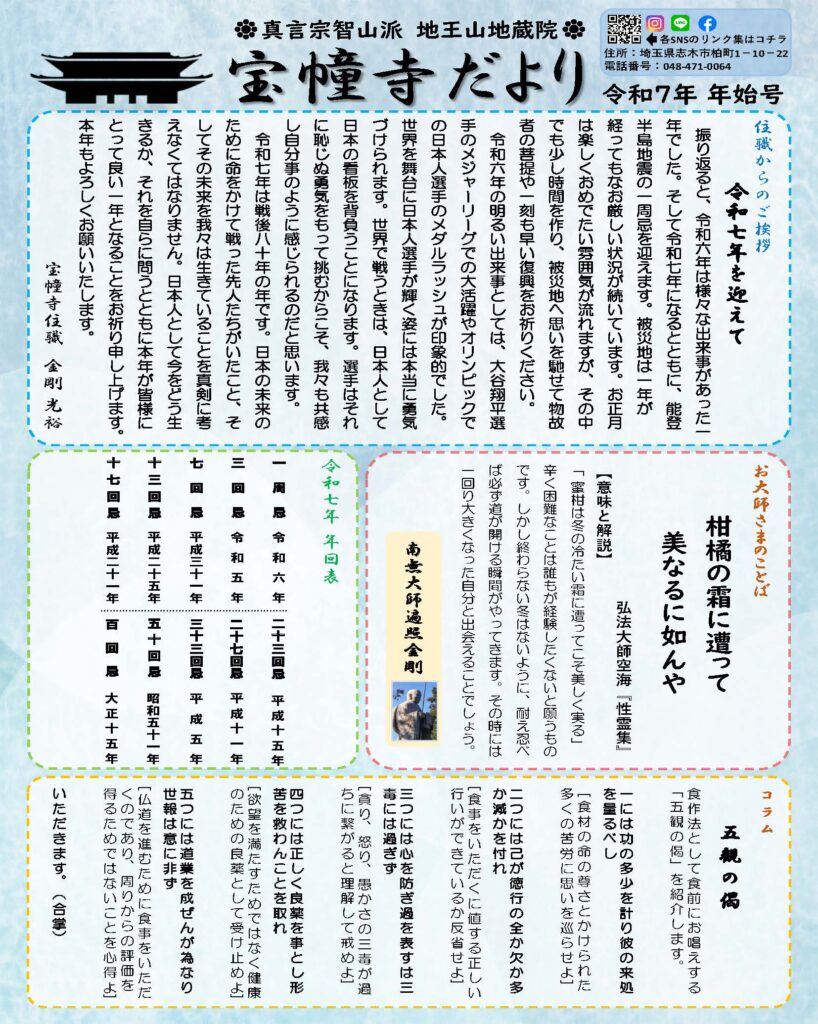 真言宗智山派 地王山地蔵院
宝幢寺だより
各SNSのリンク集はコチラ
住所：埼玉県志木市柏町1－10－22
電話番号：048-471-0064
令和7年 年始号
住職からのご挨拶
令和七年を迎えて
振り返ると、令和六年は様々な出来事があった一
年でした。そして令和七年になるとともに、能登
半島地震の一周忌を迎えます。被災地は一年が
経ってもなお厳しい状況が続いています。お正月
は楽しくおめでたい雰囲気が流れますが、その中
でも少し時間を作り、被災地へ思いを馳せて物故
者の菩提や一刻も早い復興をお祈りください。
令和六年の明るい出来事としては、大谷翔平選
手のメジャーリーグでの大活躍やオリンピックで
の日本人選手のメダルラッシュが印象的でした。
世界を舞台に日本人選手が輝く姿には本当に勇気
づけられます。世界で戦うときは、日本人として
日本の看板を背負うことになります。選手はそれ
に恥じぬ勇気をもって挑むからこそ、我々も共感
し自分事のように感じられるのだと思います。
令和七年は戦後八十年の年です。日本の未来の
ために命をかけて戦った先人たちがいたこと、そ
してその未来を我々は生きていることを真剣に考
えなくてはなりません。日本人として今をどう生
きるか、それを自らに問うとともに本年が皆様に
とって良い一年となることをお祈り申し上げます。
本年もよろしくお願いいたします。
宝幢寺住職 金剛 光裕
お大師さまのことば
柑橘の霜に遭って
美なるに如んや
弘法大師空海『性霊集』
【意味と解説】
「蜜柑は冬の冷たい霜に遭ってこそ美しく実る」
辛く困難なことは誰もが経験したくないと願うもの
です。しかし終わらない冬はないように、耐え忍べ
ば必ず道が開ける瞬間がやってきます。その時には
一回り大きくなった自分と出会えることでしょう。
南無大師遍照金剛
令和七年 年回表
一周忌 令和六年
三回忌 令和五年
七回忌 平成三十一年
十三回忌 平成二十五年
十七回忌 平成二十一年
二十三回忌 平成十五年
二十七回忌 平成十一年
三十三回忌 平成五年
五十回忌 昭和五十一年
百回忌 大正十五年
コラム
五観の偈
食作法として食前にお唱えする
「五観の偈」を紹介します。
一には功の多少を計り彼の来処
を量るべし
［食材の命の尊さとかけられた
多くの苦労に思いを巡らせよ］
二つには己が徳行の全か欠か多
か減かを付れ
［食事をいただくに値する正しい
行いができているか反省せよ］
三つには心を防ぎ過を表すは三
毒には過ぎず
［貪り、怒り、愚かさの三毒が過
ちに繋がると理解して戒めよ］
四つには正しく良薬を事とし形
苦を救わんことを取れ
［欲望を満たすためではなく健康
のための良薬として受け止めよ］
五つには道業を成ぜんが為なり
世報は意に非ず
［仏道を進むために食事をいただ
くのであり、周りからの評価を
得るためではないことを心得よ］
いただきます。（合掌）